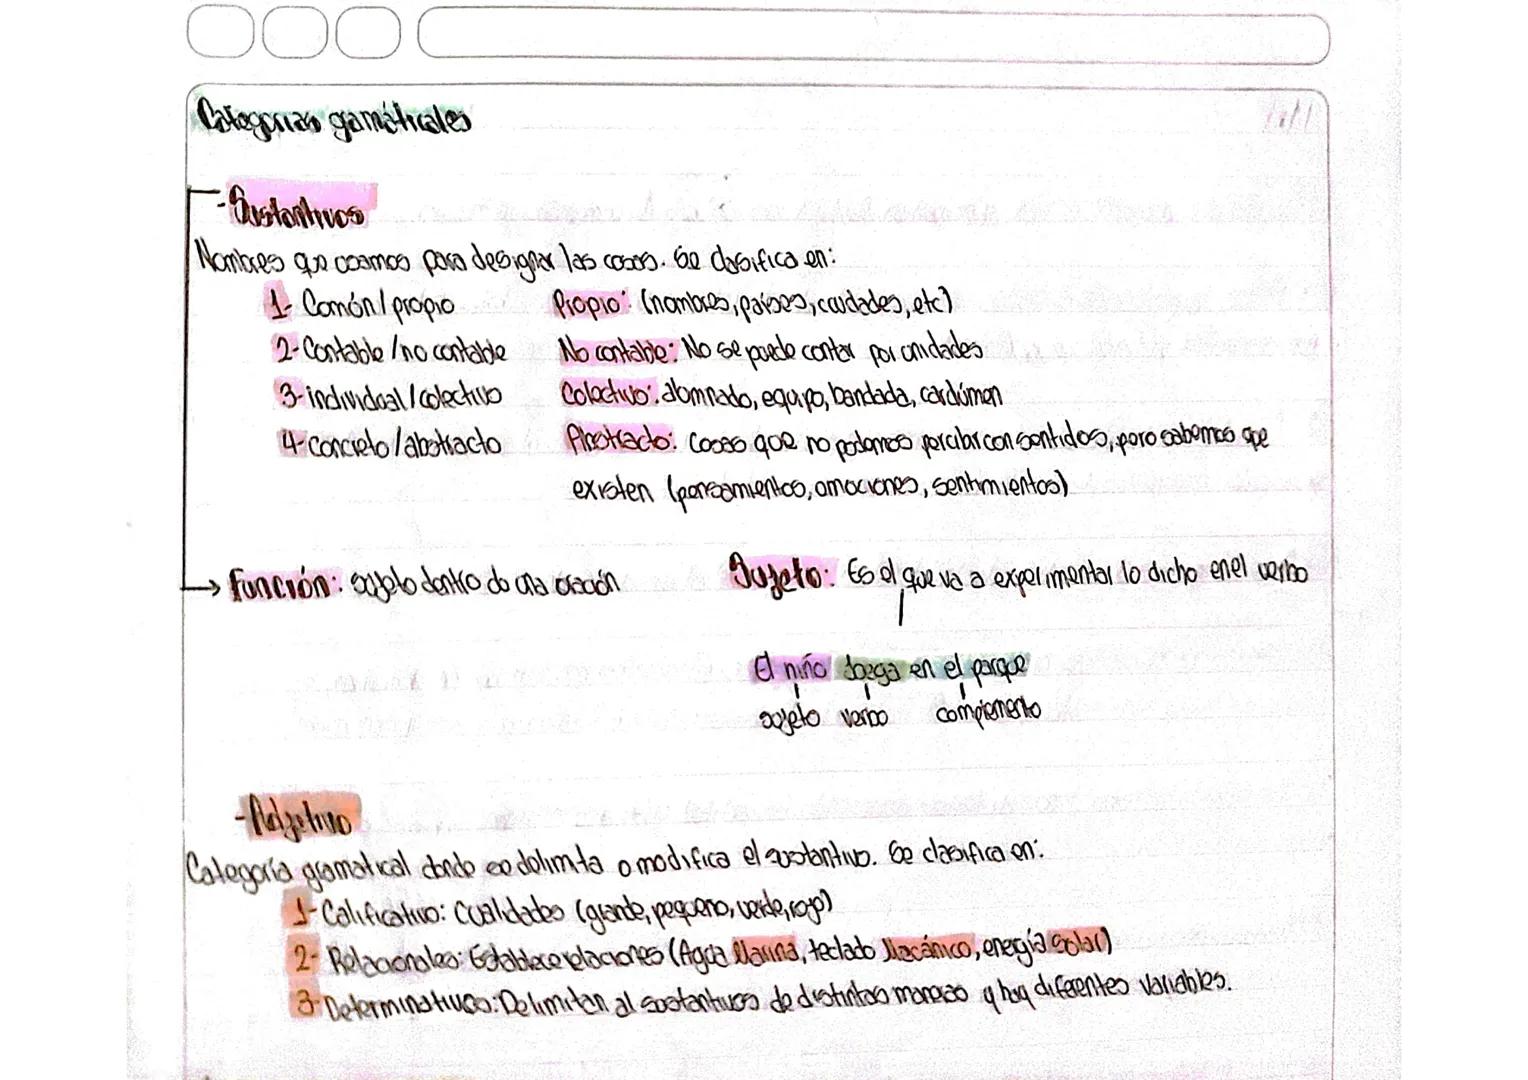 Categorias gamáticales
- Sustantivos
Nombres que usamos para designar las cosas. Se clasifica en:
1- Común / propio    Propio: (nombres, países, ciudades, etc)
2- Contable / no contable    No contable: No se puede contar por unidades
3- individual / colectivo    Colectivo: alumnado, equipo, bandada, cardúmen
4- concreto / abstracto    Abstracto: Cosas que no podemos percibir con sentidos, pero sabemos que
existen (pensamientos, emociones, sentimientos)
→ Función: sujeto dentro de una oración    Sujeto: Es el que va a experimentar lo dicho en el verbo
El niño juega en el parque
sujeto verbo complemento
- Adjetivo
Categoría gramatical donde se delimita o modifica el sustantivo. Se clasifica en:
1- Calificativo: Cualidades (grande, pequeño, verde, rojo)
2- Relacionales: Establece relaciones (Agua Marina, teclado Mecánico, energía solar)
3- Determinativos: Delimitan al sustantivos de distintas maneras y hay diferentes variables.